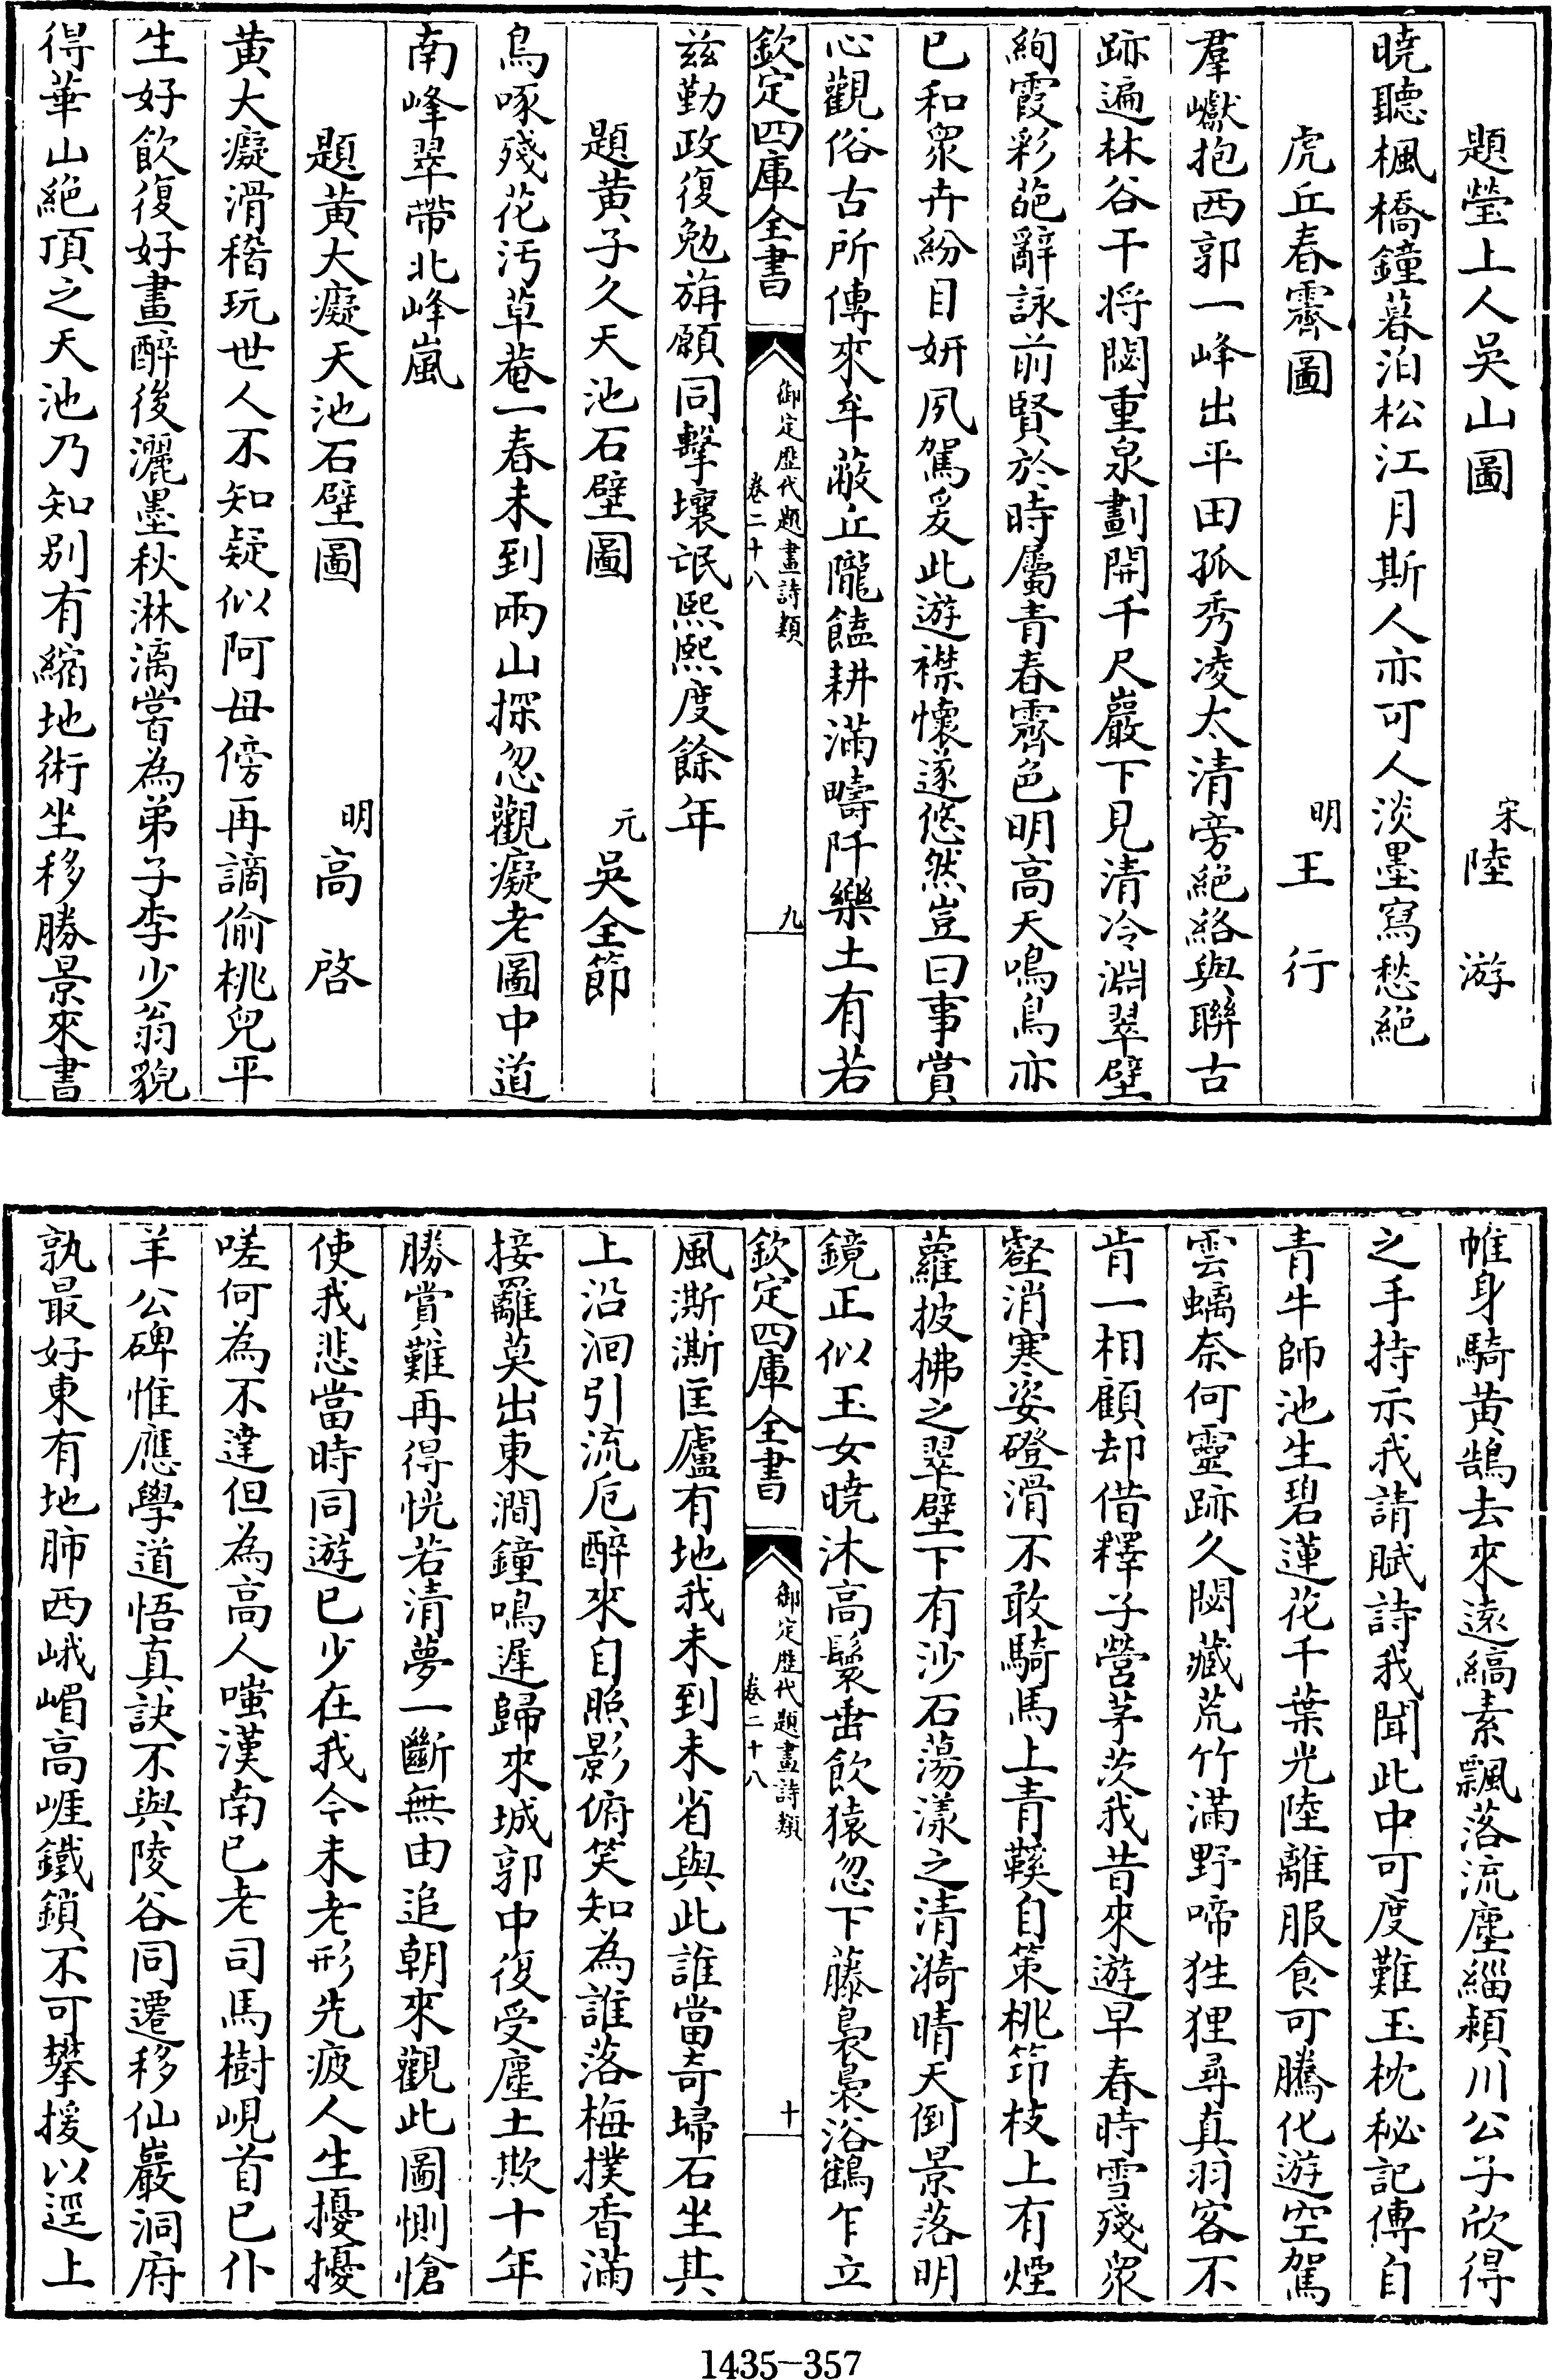 題瑩上人吳山圖 宋陸游
曉聽楓橋鐘暮泊松江月斯人亦可人淡墨寫愁絕
虎丘春霽圖 明王行
羣巘抱西郭一峰出平田孤秀凌太清旁絕絡與聯古
跡遍林谷干将閟重泉劃開千尺巖下見清冷淵翠壁
絢霞彩葩辭詠前賢於時屬青春霽色明高天鳴鳥亦
已和衆卉紛目妍夙駕爰此遊襟懷逐悠然豈曰事賞
心觀俗古所傳來牟蔽丘隴饁耕滿疇阡樂土有若
欽定四庫全書 御定歷代題畫詩類 卷二十八 九
茲勤政復勉旃願同擊壤氓熙熙度餘年
題黃子久天池石壁圖 元吳全節
烏啄殘花汚草菴一春未到兩山探忽觀癡老圖中道
南峰翠帶北峰嵐
題黃大癡天池石壁圖 明高啓
黃大癡滑稽玩世人不知疑似阿母傍再謫偷桃兒平
生好飲復好畫醉後灑墨秋淋漓嘗為弟子李少翁貌
得華山絕頂之天池乃知別有縮地術坐移勝景來書
帷身騎黃鵠去來遠縞素飄落流塵緇潁川公子欣得
之手持示我請賦詩我聞此中可度難玉枕秘記傳自
青牛師池生碧蓮花千葉光陸離服食可騰化遊空駕
雲螭奈何靈跡久閟藏荒竹滿野啼狌狸尋真羽客不
肯一相顧却借釋子營茅茨我昔來遊早春時雪殘衆
壑消寒姿磴滑不敢騎馬上青鞵自策桃笻枝上有煙
蘿披拂之翠壁下有沙石蕩漾之清漪晴天倒景落明
鏡正似玉女曉沐高鬟垂飲猿忽下藤裊裊浴鶴乍立
欽定四庫全書 御定歷代題畫詩類 卷二十八 十
風澌澌匡廬有地我未到未省與此誰當奇埽石坐其
上沿洄引流卮醉來自照影俯笑知為誰落梅撲香滿
接䍦莫出東澗鐘鳴遲歸來城郭中復受塵土欺十年
勝賞難再得恍若清夢一斷無由追朝來觀此圖惻愴
使我悲當時同遊已少在我今未老形先疲人生擾擾
嗟何為不達但為高人嗤漢南已老司馬樹峴首已仆
羊公碑惟應學道悟真訣不與陵谷同遷移仙巖洞府
孰最好東有地肺西峨嵋高崕鐵鎖不可攀援以逕上
1435-357